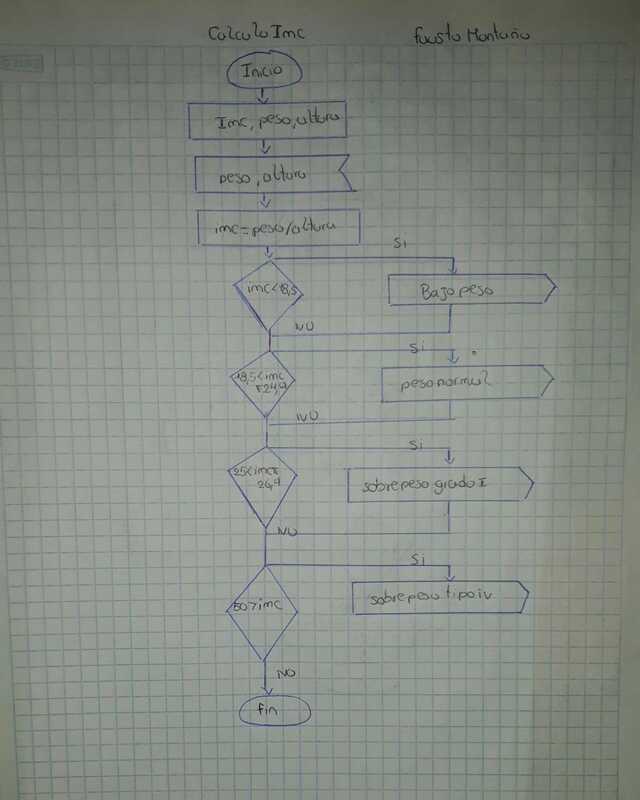 Calculo Imc
Fausto Montaño
Inicio
Imc, peso, altura
peso, altura
imc=peso/altura
Si
imc<18,5
Bajo peso
NO
Si
18,5<imc
<24,9
peso normal
NO
Si
25<imc<
26,9
sobre peso grado I
NO
Si
50>imc
sobre peso tipo iv
NO
fin